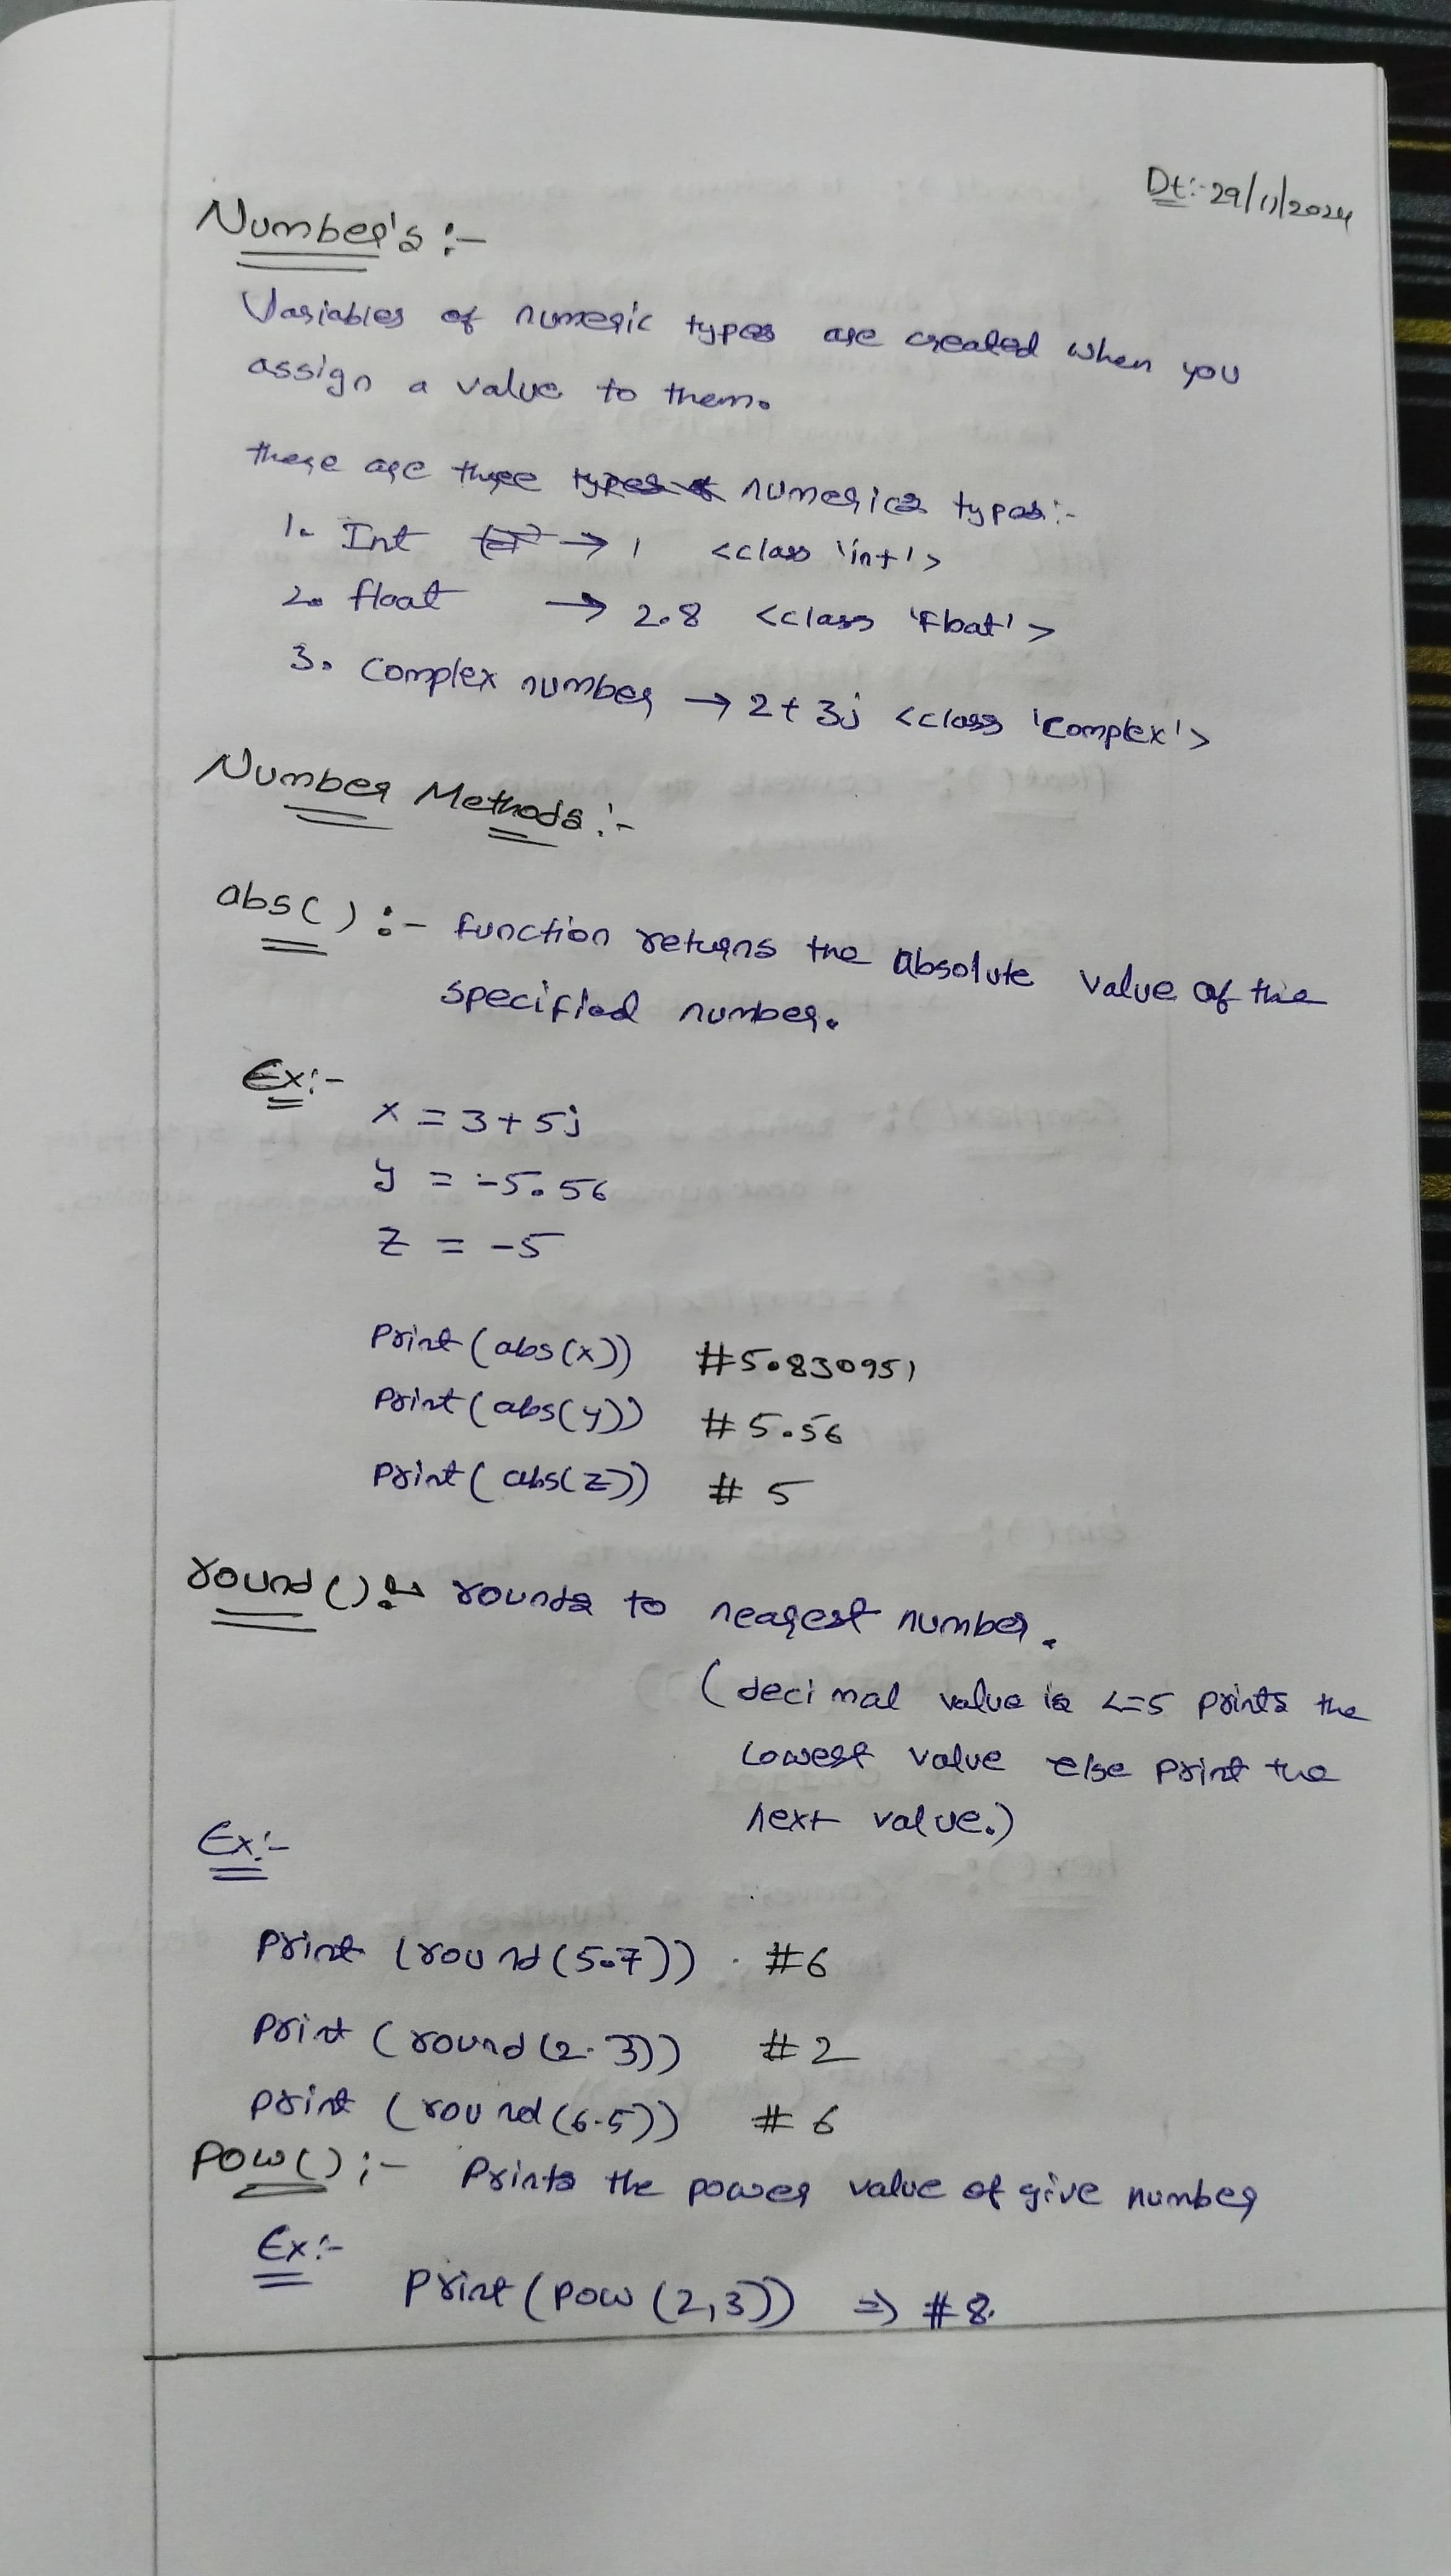 Dt:- 29/11/2024
Number's :-
Variables of numeric types are created when you
assign a value to them.
there are three numerics types:-
1. Int → 1 <class 'int'>
2. float → 2.8 <class 'float'>
3. Complex number → 2+3j <class 'Complex'>
Number Methods:-
abs() :- function returns the absolute value of the
specified number.
Ex:-
x = 3+5j
y = -5.56
z = -5
Print(abs(x)) #5.830951
Print(abs(y)) #5.56
Print(abs(z)) # 5
round():- rounds to nearest number.
(decimal value is <=5 prints the
lowest value else print the
next value.)
Ex:-
Print (round(5.7)) #6
Print (round(2.3)) #2
Print (round(6.5)) #6
Pow():- Prints the power value of give number
Ex:-
Print(Pow(2,3)) => #8.